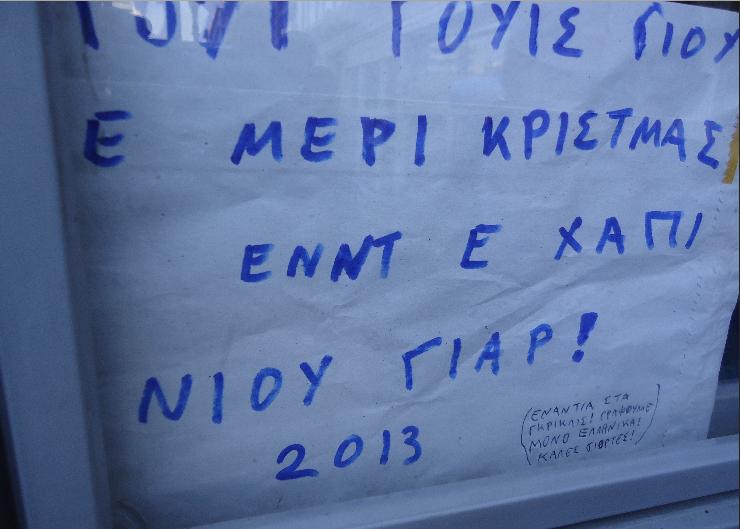 ΓΟΥΙ ΓΟΥΙΣ ΓΙΟΥ
Ε ΜΕΡΙ ΚΡΙΣΤΜΑΣ
ΕΝΝΤ Ε ΧΑΠΙ
ΝΙΟΥ ΓΙΑΡ!
2013
(ΕΝΑΝΤΙΑ ΣΤΑ
ΓΚΡΙΚΛΙΣ! ΓΡΑΦΟΥΜΕ
ΜΟΝΟ ΕΛΛΗΝΙΚΑ!
ΚΑΛΕΣ ΓΙΟΡΤΕΣ!)